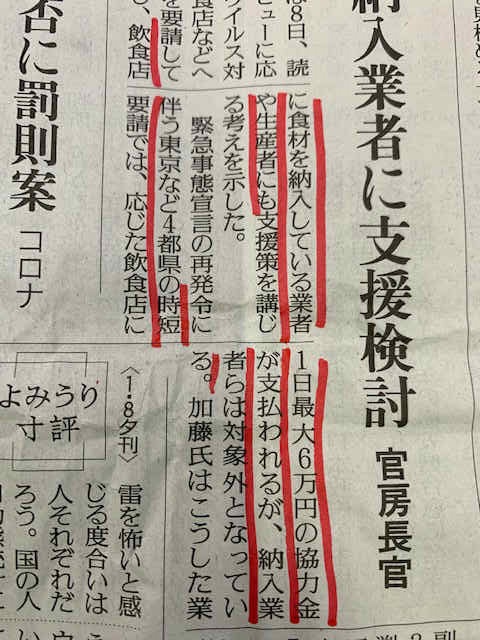 納入業者に支援検討
官房長官
は8日、読
ビューに応
ウイルス対
食店などへ
を要請して
飲食店
に食材を納入している業者
や生産者にも支援策を講じ
る考えを示した。
緊急事態宣言の再発令に
伴う東京など4都県の時短
要請では、応じた飲食店に
1日最大6万円の協力金
が支払われるが、納入業
者らは対象外となってい
る。加藤氏はこうした業
否に罰則案
コロナ
よみうり
寸評
〈1・8夕刊〉
雷を怖いと感
じる度合いは
人それぞれだ
ろう。国の人